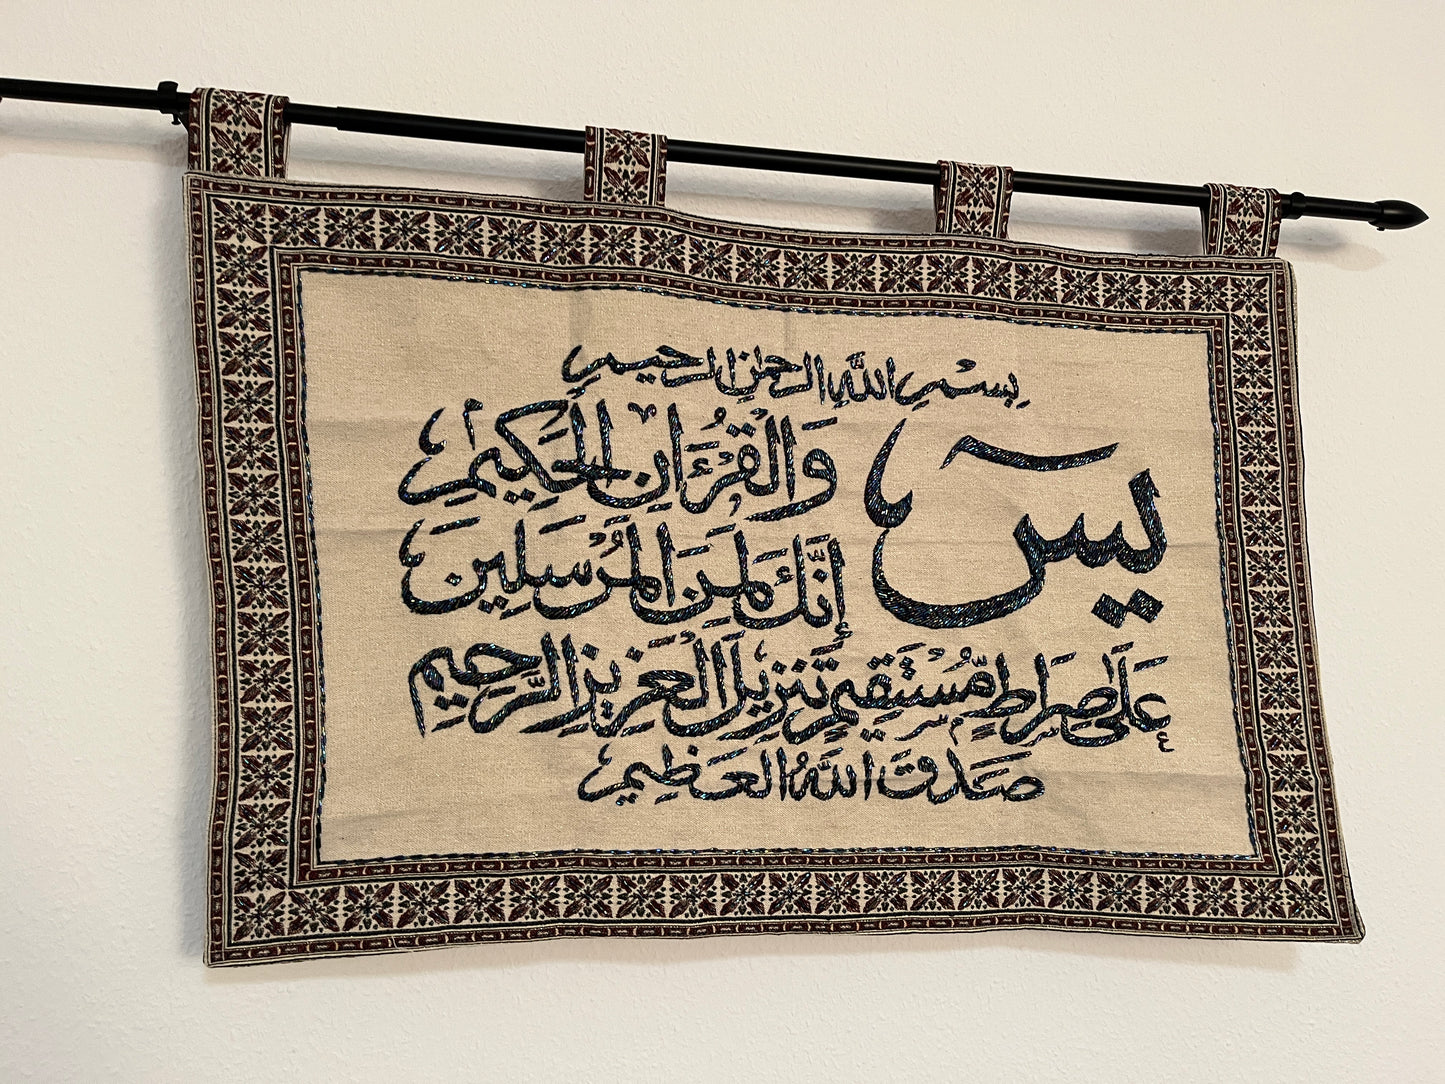 بِسْمِ اللَّهِ الرَّحْمٰنِ الرَّحِيمِ
يسٓ وَالْقُرْءَانِ الْحَكِيمِ
إِنَّكَ لَمِنَ الْمُرْسَلِينَ
عَلَىٰ صِرَاطٍ مُّسْتَقِيمٍ تَنزِيلَ الْعَزِيزِ الرَّحِيمِ
صَدَقَ اللَّهُ الْعَظِيم